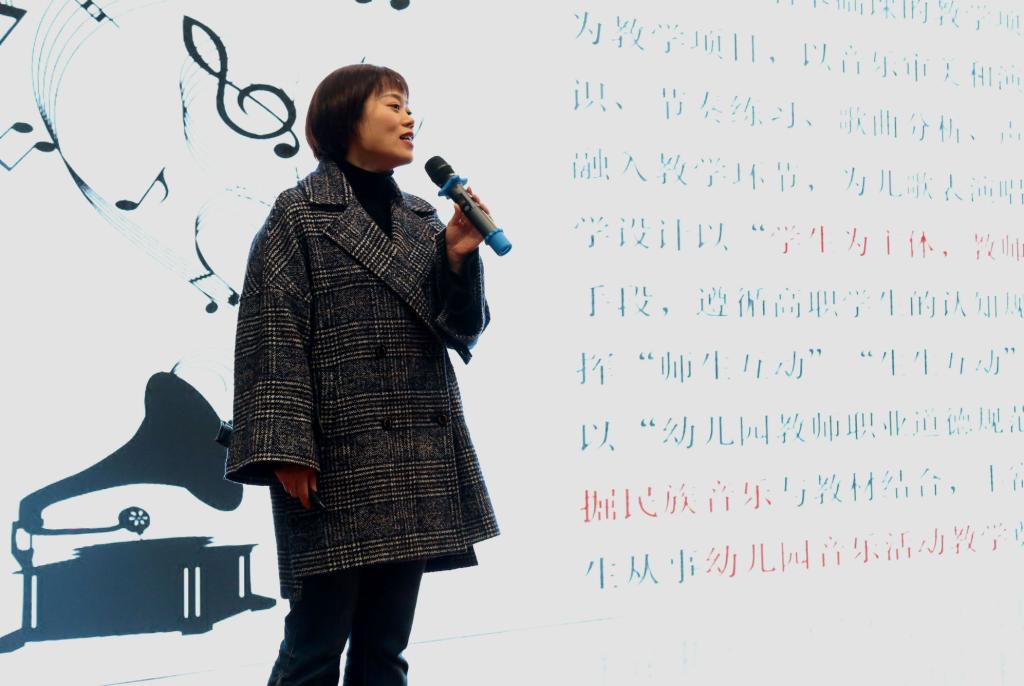 的教学项
为教学项目，以音乐审美和演
识、节奏练习、歌曲分析、声
融入教学环节，为儿歌表演唱
学设计以“学生为主体，教师
手段，遵循高职学生的认知规
挥“师生互动”“生生互动”
以“幼儿园教师职业道德规范
掘民族音乐与教材结合，丰富
生从事幼儿园音乐活动教学